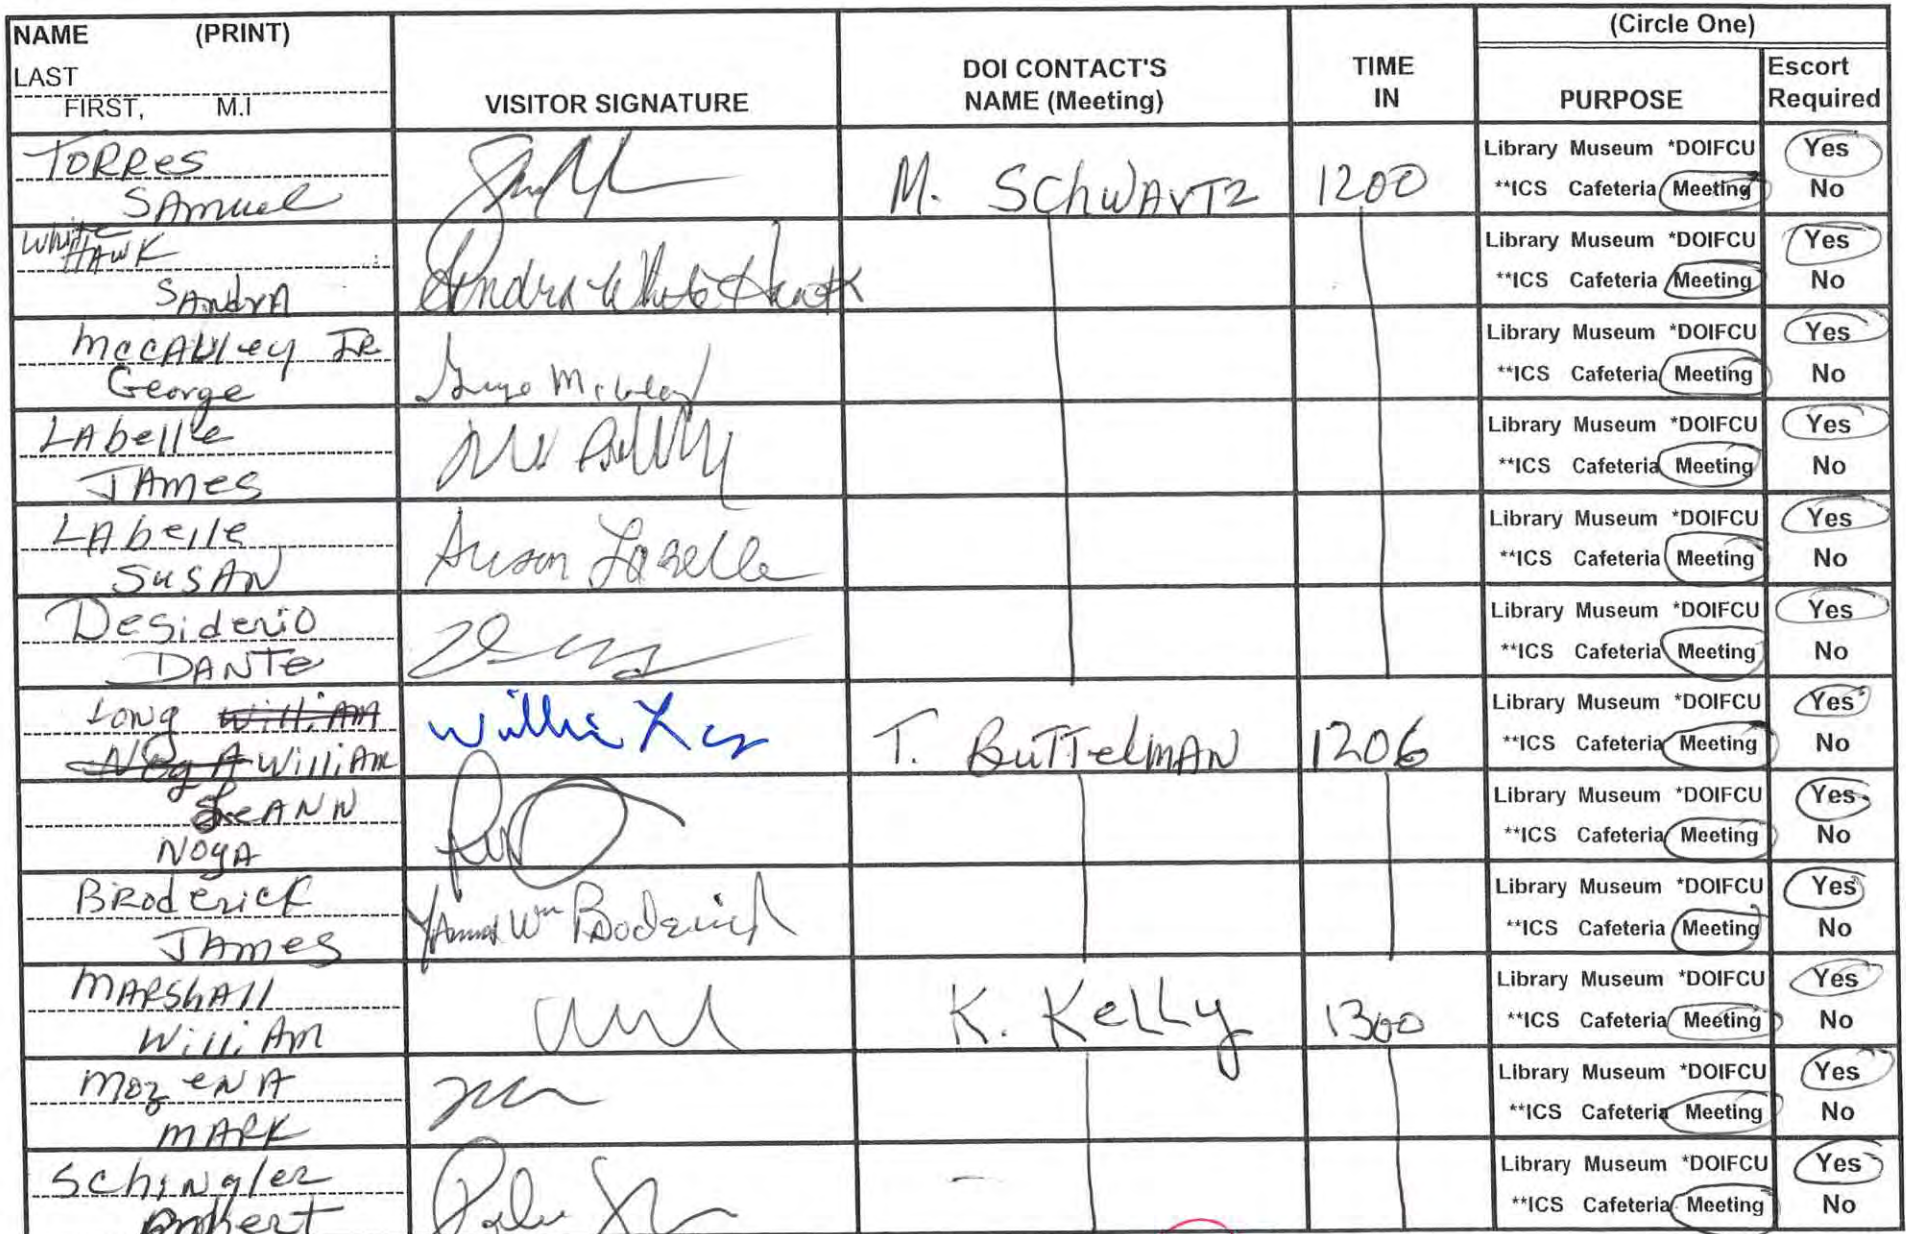 NAME (PRINT)
LAST
FIRST, M.I
VISITOR SIGNATURE
DOI CONTACT'S
NAME (Meeting)
TIME
IN
(Circle One)
PURPOSE
Escort
Required
TORRes
SAmuel
M. SchwArtz
1200
Library Museum *DOIFCU
**ICS Cafeteria Meeting
Yes
No
White
HAWK
SAndrA
Sandra White Hawk
Library Museum *DOIFCU
**ICS Cafeteria Meeting
Yes
No
McCAUley JR
George
Library Museum *DOIFCU
**ICS Cafeteria Meeting
Yes
No
LAbelle
JAmes
Library Museum *DOIFCU
**ICS Cafeteria Meeting
Yes
No
LAbelle
SUSAN
Susan LaBelle
Library Museum *DOIFCU
**ICS Cafeteria Meeting
Yes
No
Desiderio
DANTe
Library Museum *DOIFCU
**ICS Cafeteria Meeting
Yes
No
Long WilliAm
NogA WilliAm
T. ButtelmAN
1206
Library Museum *DOIFCU
**ICS Cafeteria Meeting
Yes
No
LeANN
NogA
Library Museum *DOIFCU
**ICS Cafeteria Meeting
Yes
No
BRoderick
JAmes
James Wm Broderick
Library Museum *DOIFCU
**ICS Cafeteria Meeting
Yes
No
MARShAll
WilliAm
K. Kelly
1300
Library Museum *DOIFCU
**ICS Cafeteria Meeting
Yes
No
MozeNA
MARK
Library Museum *DOIFCU
**ICS Cafeteria Meeting
Yes
No
SchiNgler
Robert
Library Museum *DOIFCU
**ICS Cafeteria Meeting
Yes
No